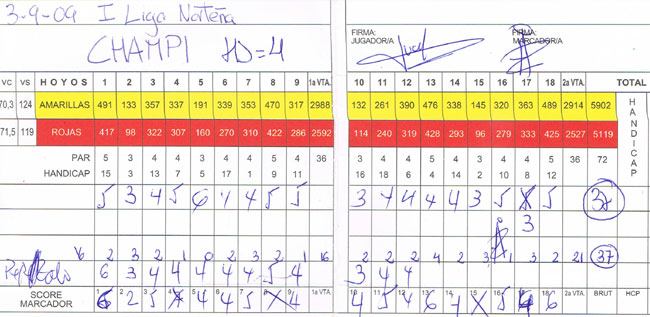 3-9-09 I Liga Norteña
CHAMPI HD=4
FIRMA: JUGADOR/A
FIRMA: MARCADOR/A
VC VS HOYOS 1 2 3 4 5 6 7 8 9 1a VTA. 10 11 12 13 14 15 16 17 18 2a VTA. TOTAL
70,3 124 AMARILLAS 491 133 357 337 191 339 353 470 317 2988 132 261 390 476 338 145 320 363 489 2914 5902
71,5 119 ROJAS 417 98 322 307 160 270 310 422 286 2592 114 240 319 428 293 96 279 333 425 2527 5119
HANDICAP
PAR 5 3 4 4 3 4 4 5 4 36 3 4 4 5 4 3 4 4 5 36 72
HANDICAP 15 3 13 7 5 17 1 9 11 16 18 6 4 14 2 10 8 12
5 3 4 5 6 4 4 5 5 3 4 4 4 4 3 5 5 37
3
V6 2 3 2 1 0 2 3 2 1 16 2 2 2 4 2 3 1 2 3 2 21 37
6 3 4 4 4 4 4 5 4 3 4 4
SCORE MARCADOR 6 2 5 X 4 4 5 X 4 1a VTA. 4 5 4 6 4 X 5 4 6 2a VTA. BRUT HCP